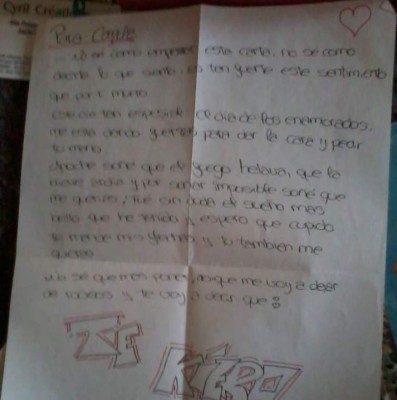 Cyril Créati
Para
... No sé como empezar esta carta, no se como
decirte lo que siento, es tan fuerte este sentimiento
que por ti muero.
este dia tan especial el dia de los enamorados.
me esta dando fuerzas para dar la cara y pedir
tu mano.
Anoche soñe que el fuego helava, que la
nieve ardia y por soñar imposible soñé que
me querias, fue sin duda el sueño mas
bello que he tenido y espero que cupido
te mande mis flechas y tu tambien me
quieras
No se que mas poner, asi que me voy a dejar
de rodeos y te voy a decir que:
TE
KERO